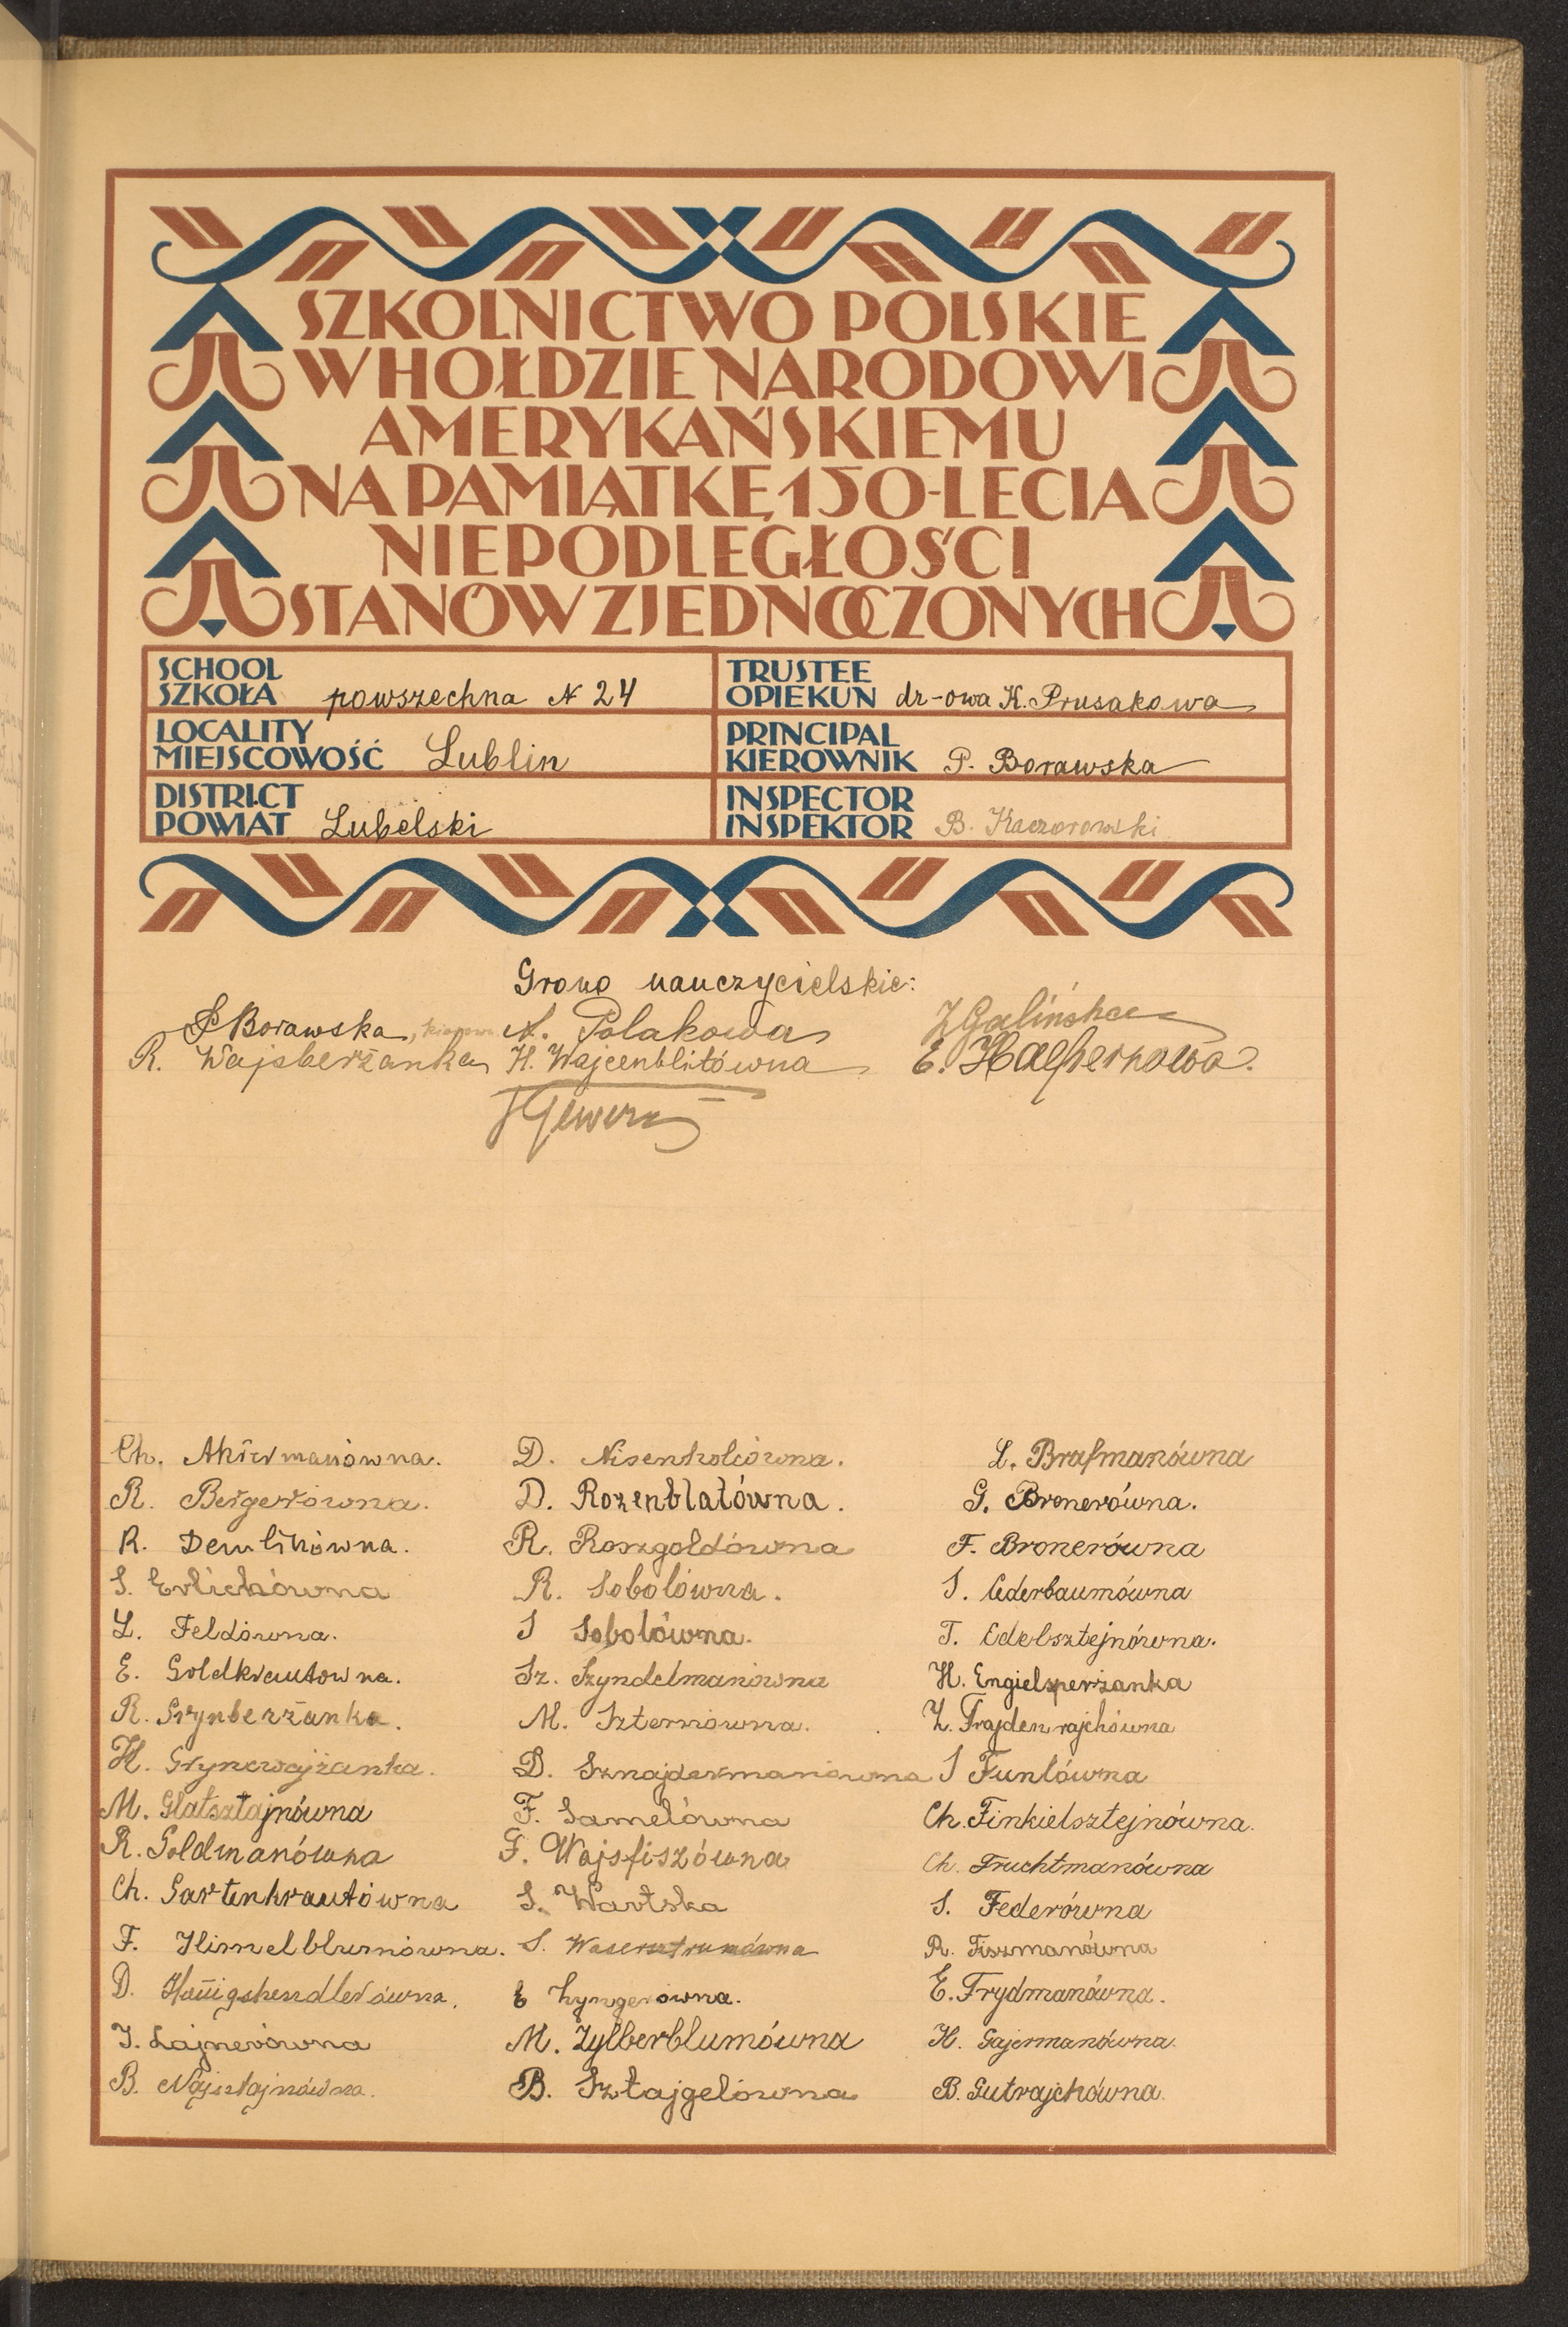 SZKOLNICTWO POLSKIE
W HOŁDZIE NARODOWI
AMERYKAŃSKIEMU
NA PAMIĄTKĘ 150-LECIA
NIEPODLEGŁOŚCI
STANÓW ZJEDNOCZONYCH
SCHOOL
SZKOŁA powszechna N 24
TRUSTEE
OPIEKUN dr-owa K. Prusakowa
LOCALITY
MIEJSCOWOŚĆ Lublin
PRINCIPAL
KIEROWNIK P. Borawska
DISTRICT
POWIAT Lubelski
INSPECTOR
INSPEKTOR B. Kaczorowski
Grono nauczycielskie:
P Borawska, A. Polakowa Z Galińska
R. Wajsberżanka H. Wajcenblitówna E. Halpernowa.
Gewerz
Ch. Akiermanówna.
R. Bergerówna.
R. Demlikówna.
S. Erlichówna
L. Feldówna.
E. Goldkrautowna.
R. Grynberżanka.
H. Grynewajżanka.
M. Glatsztajnówna
R. Goldmanówna
Ch. Gartenkrautówna
F. Himelblumówna.
D. Honigshendlerówna.
J. Lajnerówna
B. Najsztajnówna.
D. Nisenholcówna.
D. Rozenblatówna.
R. Roszgoldówna
R. Sobolówna.
S Sobolówna.
Sz. Szyndelmanówna
M. Szternówna.
D. Sznajdermanówna
F. Samelówna
G. Wajsfiszówna
S. Wartska
S. Waserstrumówna
E Zyngerówna.
M. Zylberblumówna
B. Sztajgelówna
L. Brafmanówna
G. Bronerówna.
F. Bronerówna
S. Cederbaumówna
T. Edelsztejnówna.
H. Engielsperżanka
Z. Frajdenrajchówna
S Funtówna
Ch. Finkielsztejnówna.
Ch. Fruchtmanówna
S. Federówna
R. Fiszmanówna
E. Frydmanówna.
H. Gajermanówna.
B. Gutrajchówna.